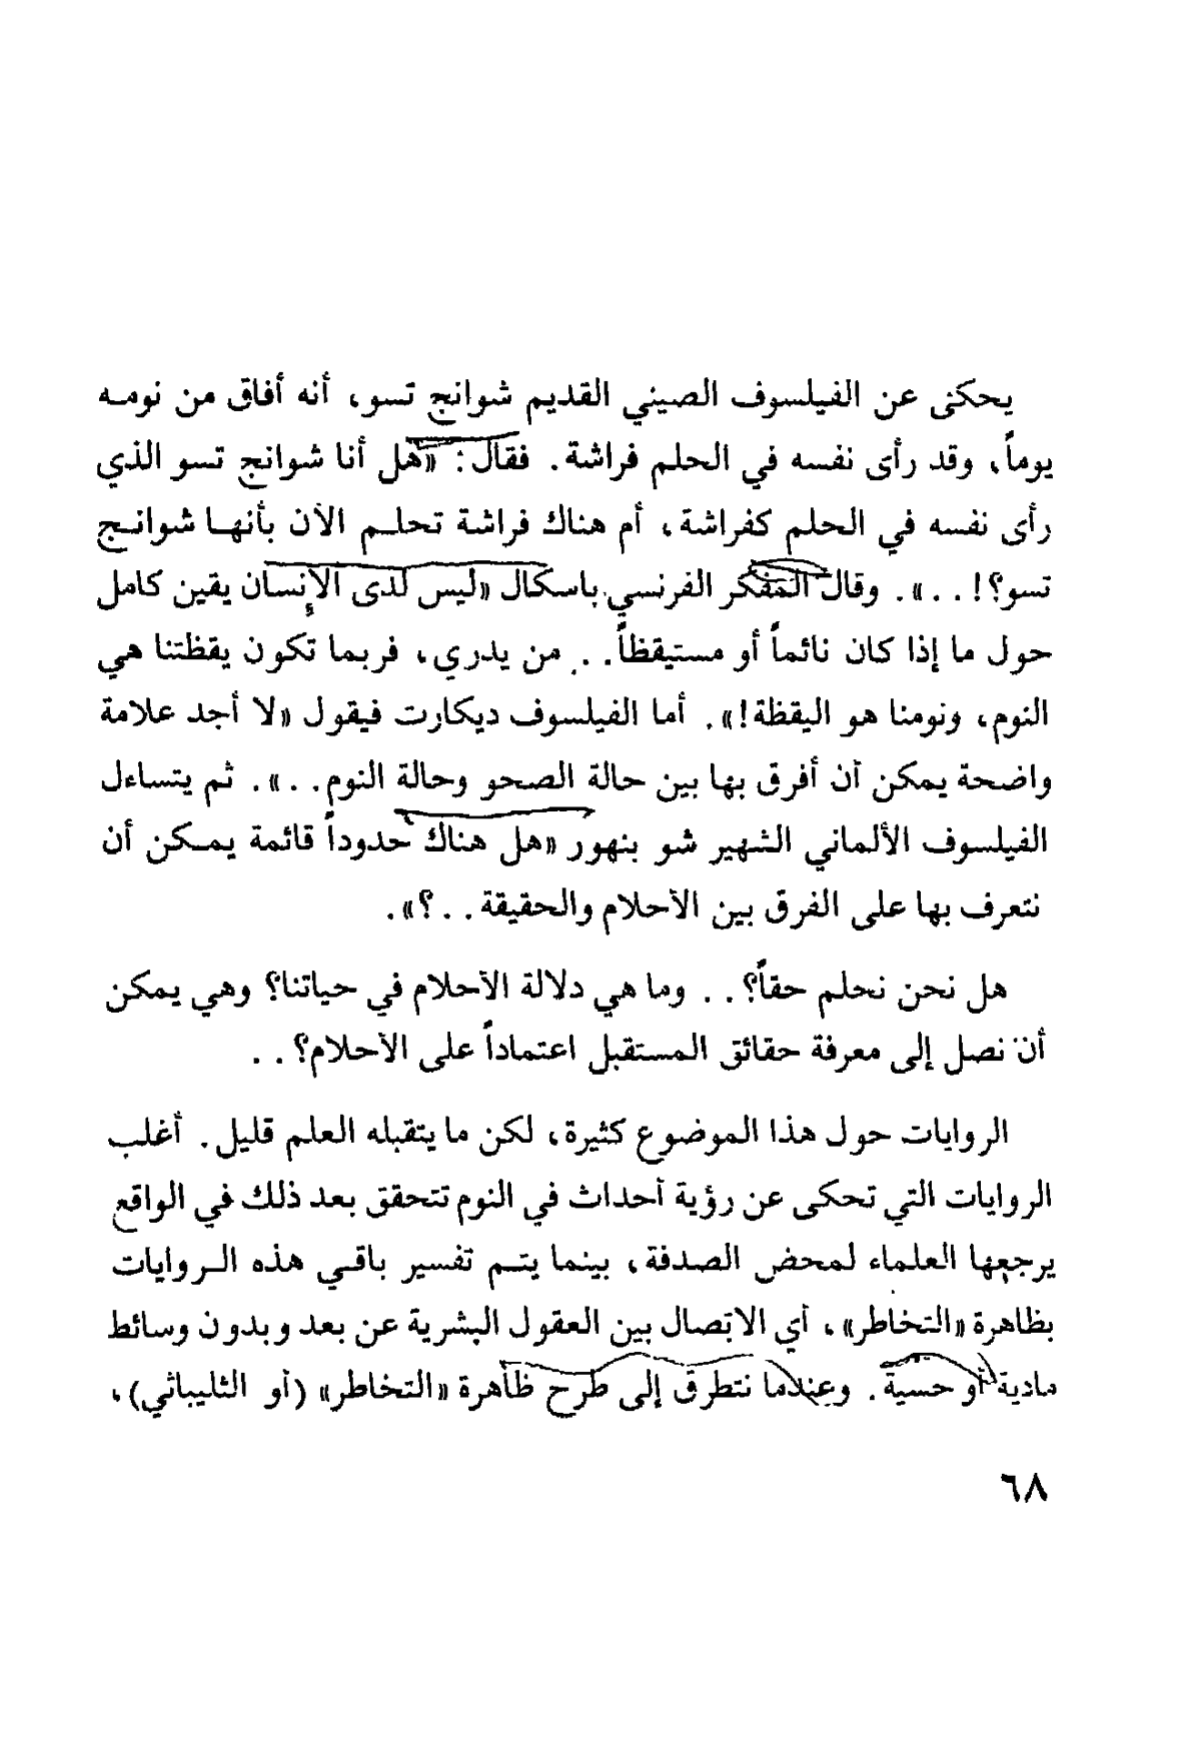 يحكى عن الفيلسوف الصيني القديم شوانج تسو، أنه أفاق من نومه
يوماً، وقد رأى نفسه في الحلم فراشة. فقال: «هل أنا شوانج تسو الذي
رأى نفسه في الحلم كفراشة، أم هناك فراشة تحلم الآن بأنها شوانج
تسو؟!..». وقال المفكر الفرنسي باسكال «ليس لدى الإنسان يقين كامل
حول ما إذا كان نائماً أو مستيقظاً.. من يدري، فربما تكون يقظتنا هي
النوم، ونومنا هو اليقظة!». أما الفيلسوف ديكارت فيقول «لا أجد علامة
واضحة يمكن أن أفرق بها بين حالة الصحو وحالة النوم..». ثم يتساءل
الفيلسوف الألماني الشهير شو بنهور «هل هناك حدوداً قائمة يمكن أن
نتعرف بها على الفرق بين الأحلام والحقيقة..؟».
هل نحن نحلم حقاً؟.. وما هي دلالة الأحلام في حياتنا؟ وهي يمكن
أن نصل إلى معرفة حقائق المستقبل اعتماداً على الأحلام؟..
الروايات حول هذا الموضوع كثيرة، لكن ما يتقبله العلم قليل. أغلب
الروايات التي تحكى عن رؤية أحداث في النوم تتحقق بعد ذلك في الواقع
يرجعها العلماء لمحض الصدفة، بينما يتم تفسير باقي هذه الروايات
بظاهرة «التخاطر»، أي الاتصال بين العقول البشرية عن بعد وبدون وسائط
مادية أو حسية. وعندما نتطرق إلى طرح ظاهرة «التخاطر» (أو الثليباثي)،
٦٨